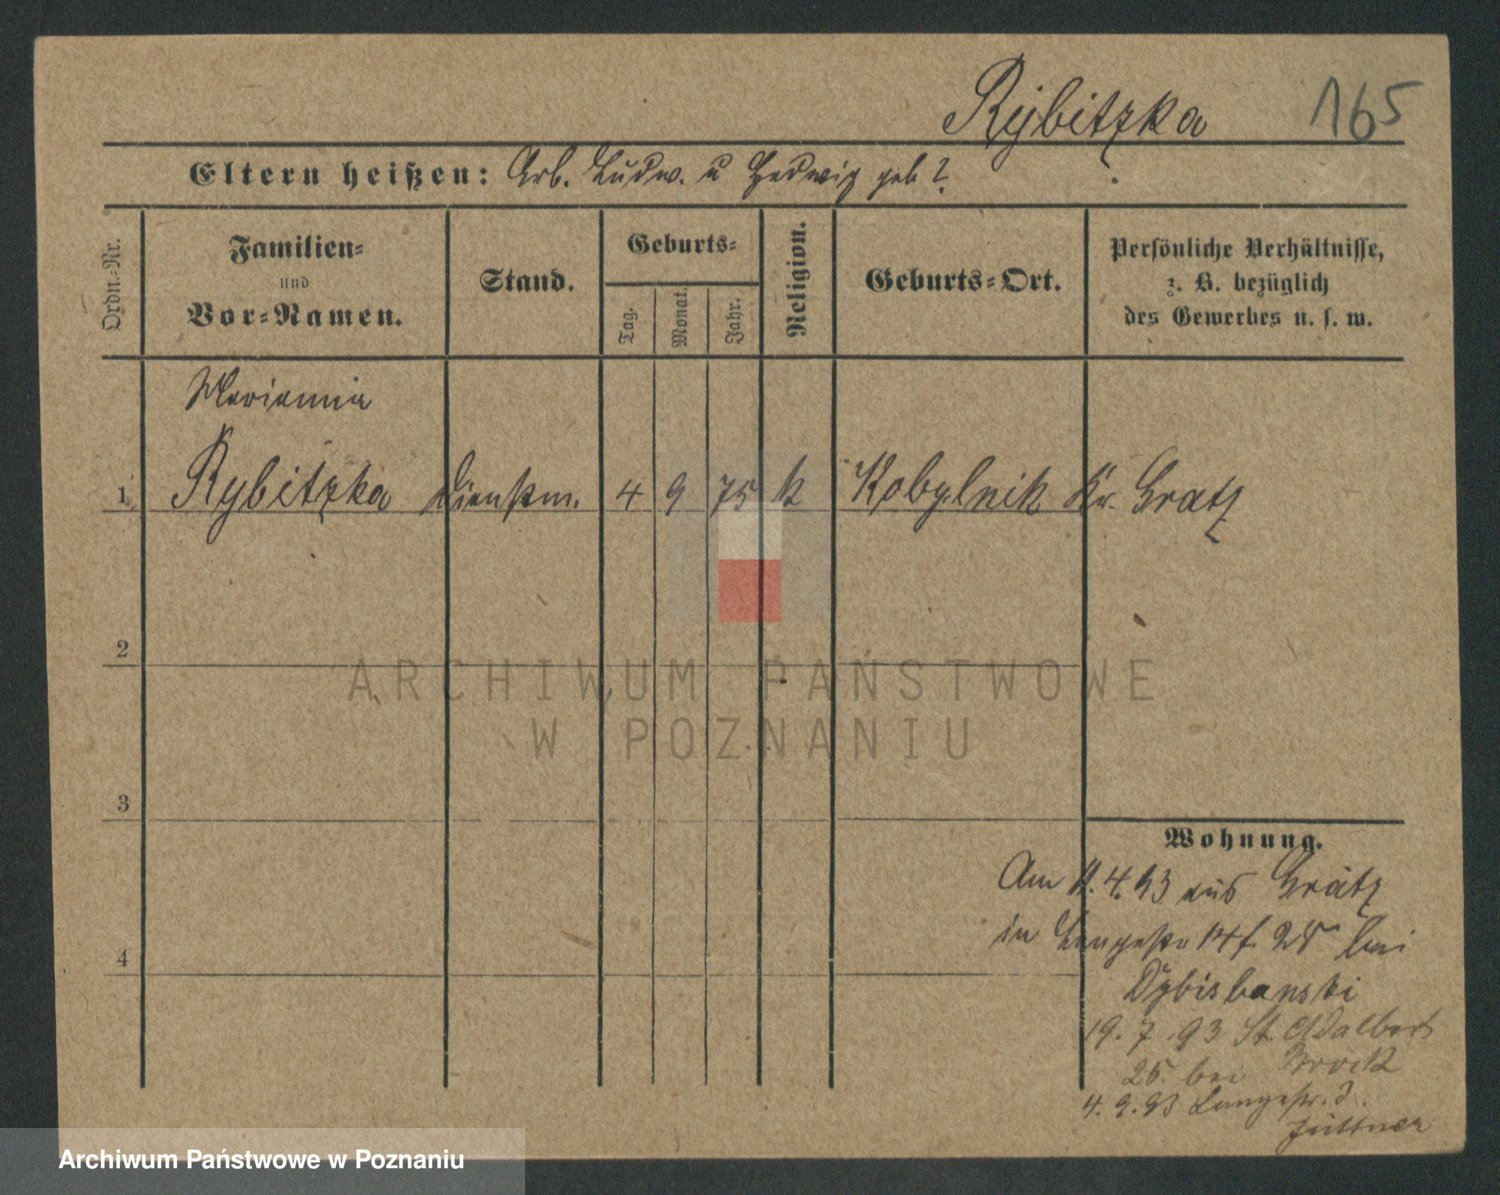 Rybitzka 165
Eltern heißen: Arb. Ludw. u Hedwig geb ?
Ordn.-Nr.
Familien-
und
Vor-Namen.
Stand.
Geburts-
Tag.
Monat.
Jahr.
Religion.
Geburts-Ort.
Persönliche Verhältnisse,
z. B. bezüglich
des Gewerbes u. s. w.
Marianna
1 Rybitzka Dienstm. 4 9 75 k Kobylnik Kr. Gratz
2
3
4
Wohnung.
Am 11.4.93 aus Grätz
in Langestr 14 bei
19.7.93 St. Adalbert
25. bei Brock
4.9.93 Langestr. 3.
Jüttner
ARCHIWUM PAŃSTWOWE
W POZNANIU
Archiwum Państwowe w Poznaniu